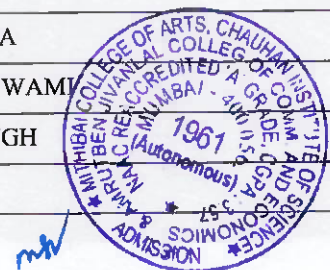 A
WAMI
GH
★ MITHIBAI COLLEGE OF ARTS, CHAUHAN INSTITUTE OF SCIENCE ★
& AMRUTBEN JIVANLAL COLLEG OF COMM. AND ECONOMICS
NAAC RE-ACCREDITED 'A' GRADE, CGPA 3.57
MUMBAI - 400 056.
1961
(Autonomous)
★
ADMISSION